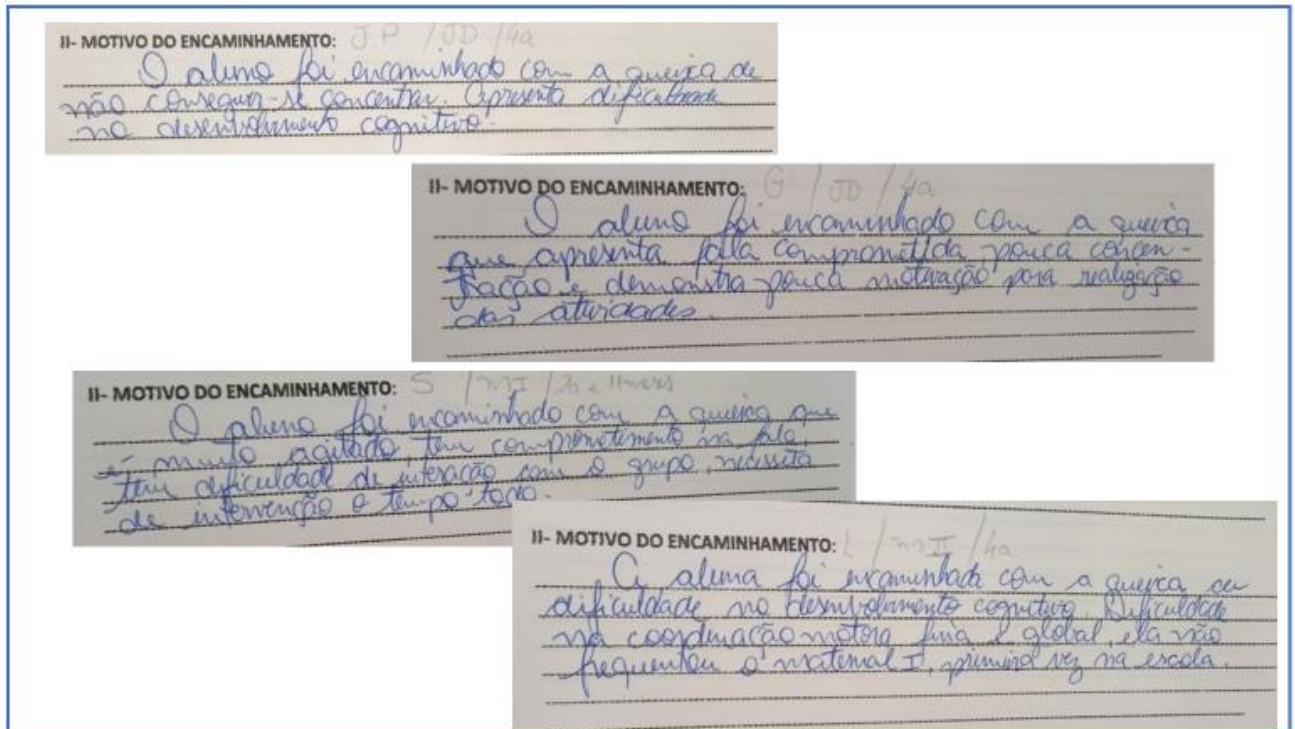 II- MOTIVO DO ENCAMINHAMENTO: J.P / JD / 4a
O aluno foi encaminhado com a queixa de
não conseguir-se concentrar. Apresenta dificuldade
no desenvolvimento cognitivo.
II- MOTIVO DO ENCAMINHAMENTO: G / JD / 4a
O aluno foi encaminhado com a queixa
que apresenta fala comprometida, pouca concen-
tração e demonstra pouca motivação para realização
das atividades.
II- MOTIVO DO ENCAMINHAMENTO: S / mI / 2a e 11 meses
O aluno foi encaminhado com a queixa que
é muito agitado, tem comprometimento na fala,
tem dificuldade de interação com o grupo, necessita
de intervenção o tempo todo.
II- MOTIVO DO ENCAMINHAMENTO: L / mII / 4a
A aluna foi encaminhada com a queixa de
dificuldade no desenvolvimento cognitivo. Dificuldade
na coordenação motora fina e global, ela não
frequentou o maternal I, primeira vez na escola.